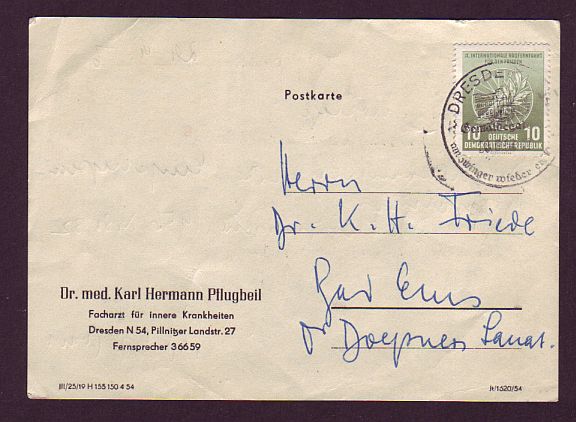 II. INTERNATIONALE RADFERNFAHRT
FÜR DEN FRIEDEN
10 DEUTSCHE 10
DEMOKRATISCHE REPUBLIK
DRESDEN
Gemäldegalerie
am Zwinger wieder
Postkarte
Herrn
Dr. K. H. Friede
Bad Ems
Dr Doepners Sanat.
Dr. med. Karl Hermann Pflugbeil
Facharzt für innere Krankheiten
Dresden N 54, Pillnitzer Landstr. 27
Fernsprecher 36659
III/25/19 H 155 150 4 54
Jt/1520/54